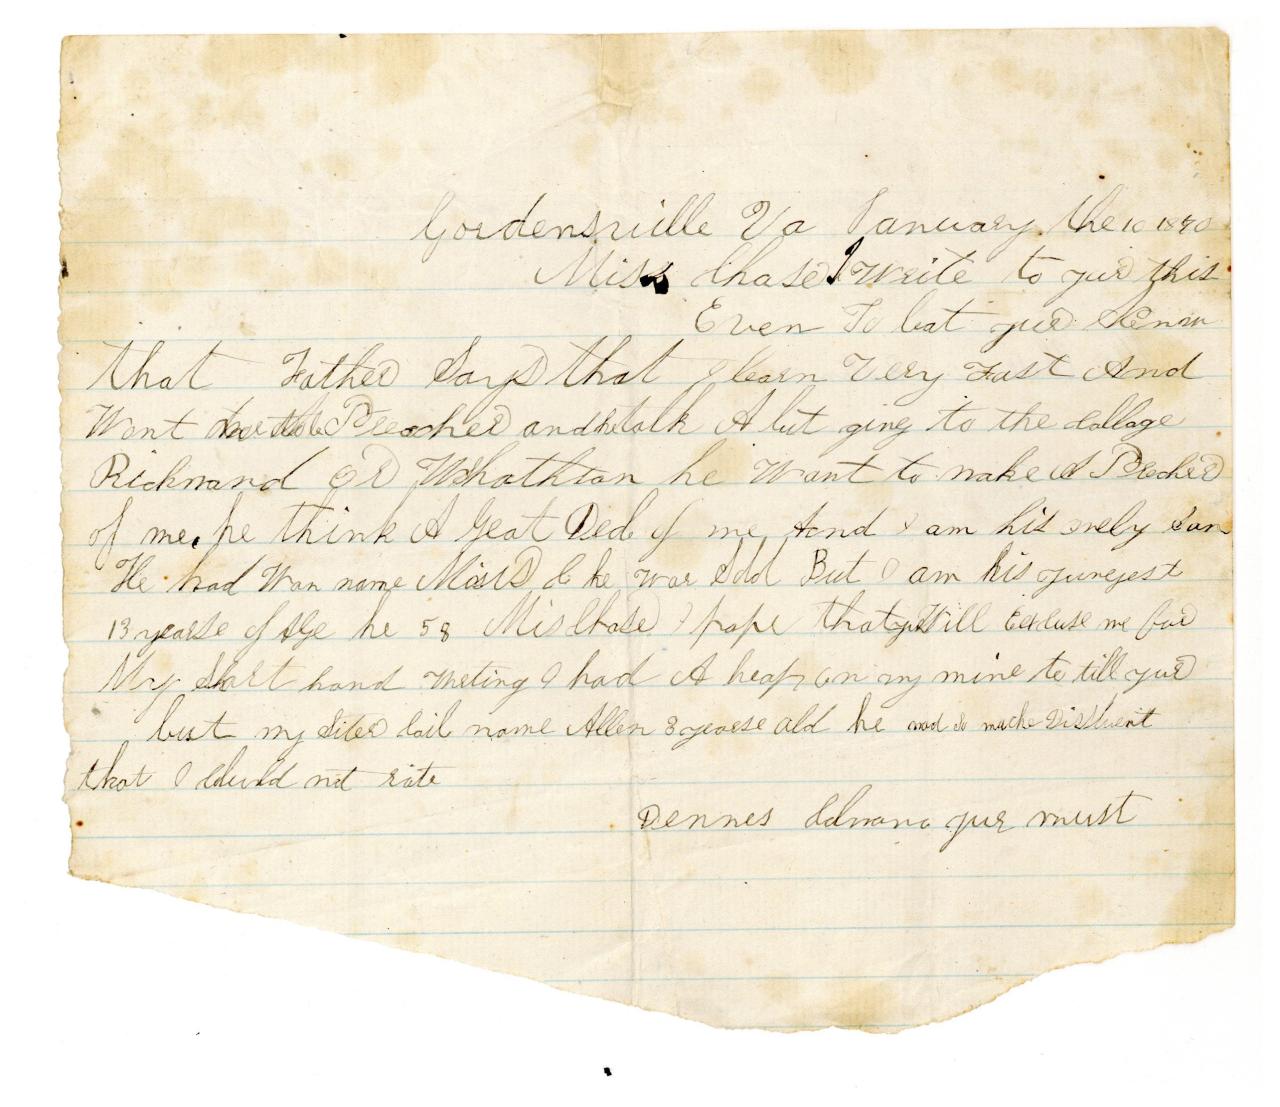 Gordensville Va January the 10 1870
Miss Chase I Write to yur this
Even To lat yur Know
that Father Says that I learn Very Fast And
Want Preacher and he talk A but ging to the Collage
Richmand Or Whathtan he Want to make A Precher
of me. he think A Geat Ded of me And I am his onely Son
He had Wan name he war Sold But I am his yungest
13 yearse of Age he 58 Mis Chase I hope that yur Will Excuse me for
My Short hand Writing I had A heap on my mine to till yur
but my Sister Cail name Allen 3 yearse old he mad so muche
that I Could not rite
Dennes yur must